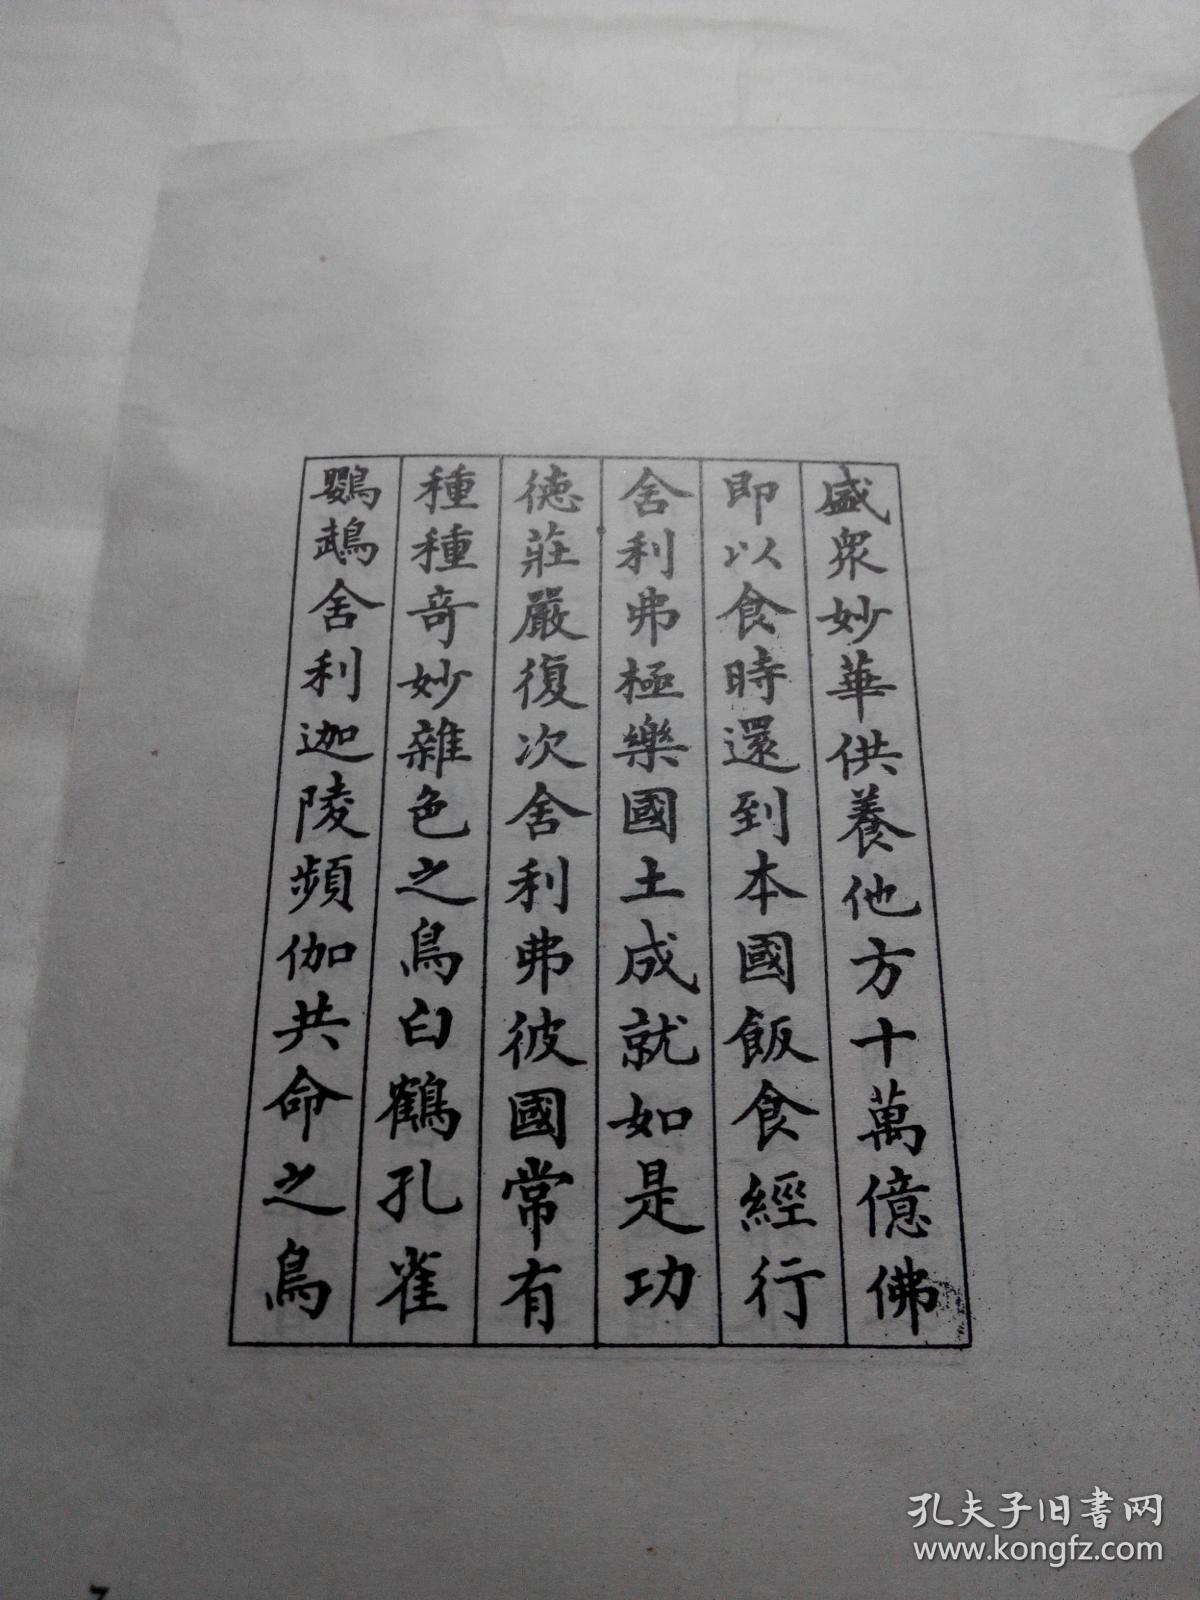 盛衆妙華供養他方十萬億佛
即以食時還到本國飯食經行
舍利弗極樂國土成就如是功
德莊嚴復次舍利弗彼國常有
種種奇妙雜色之鳥白鶴孔雀
鸚鵡舍利迦陵頻伽共命之鳥
孔夫子旧书网
www.kongfz.com